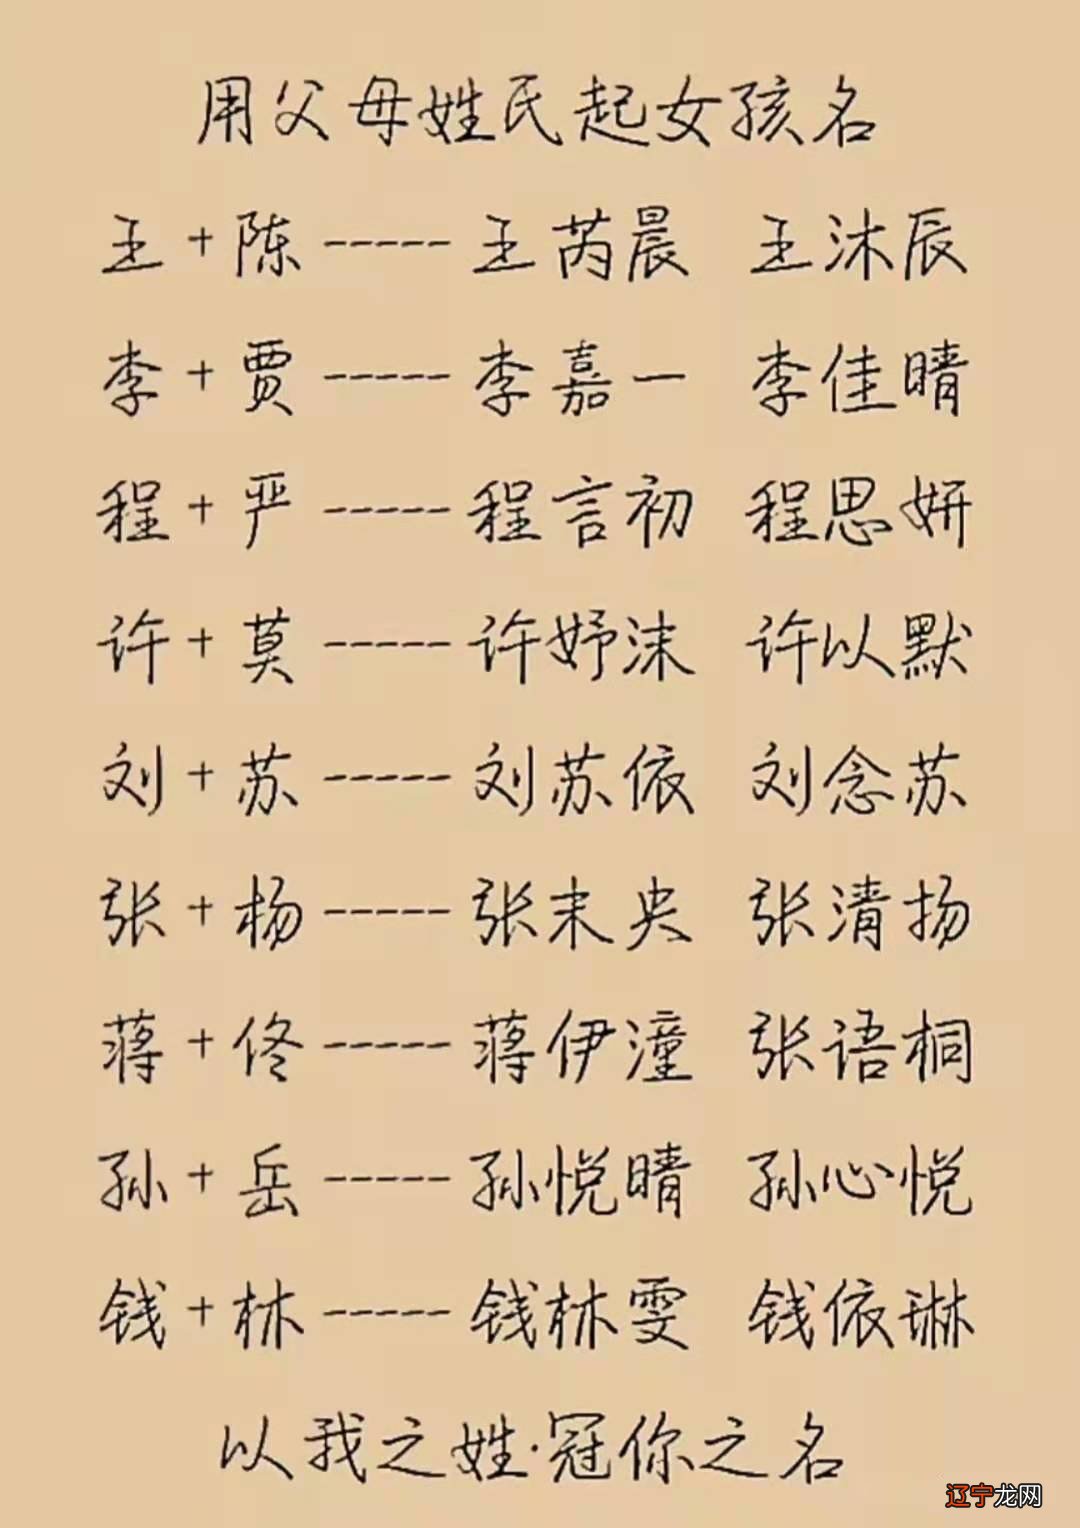 用父母姓氏起女孩名
王+陈-----王芮晨 王沐辰
李+贾-----李嘉一 李佳晴
程+严-----程言初 程思妍
许+莫-----许妤沫 许以默
刘+苏-----刘苏依 刘念苏
张+杨-----张未央 张清扬
蒋+佟-----蒋伊潼 张语桐
孙+岳-----孙悦晴 孙心悦
钱+林-----钱林雯 钱依琳
以我之姓·冠你之名
辽宁龙网